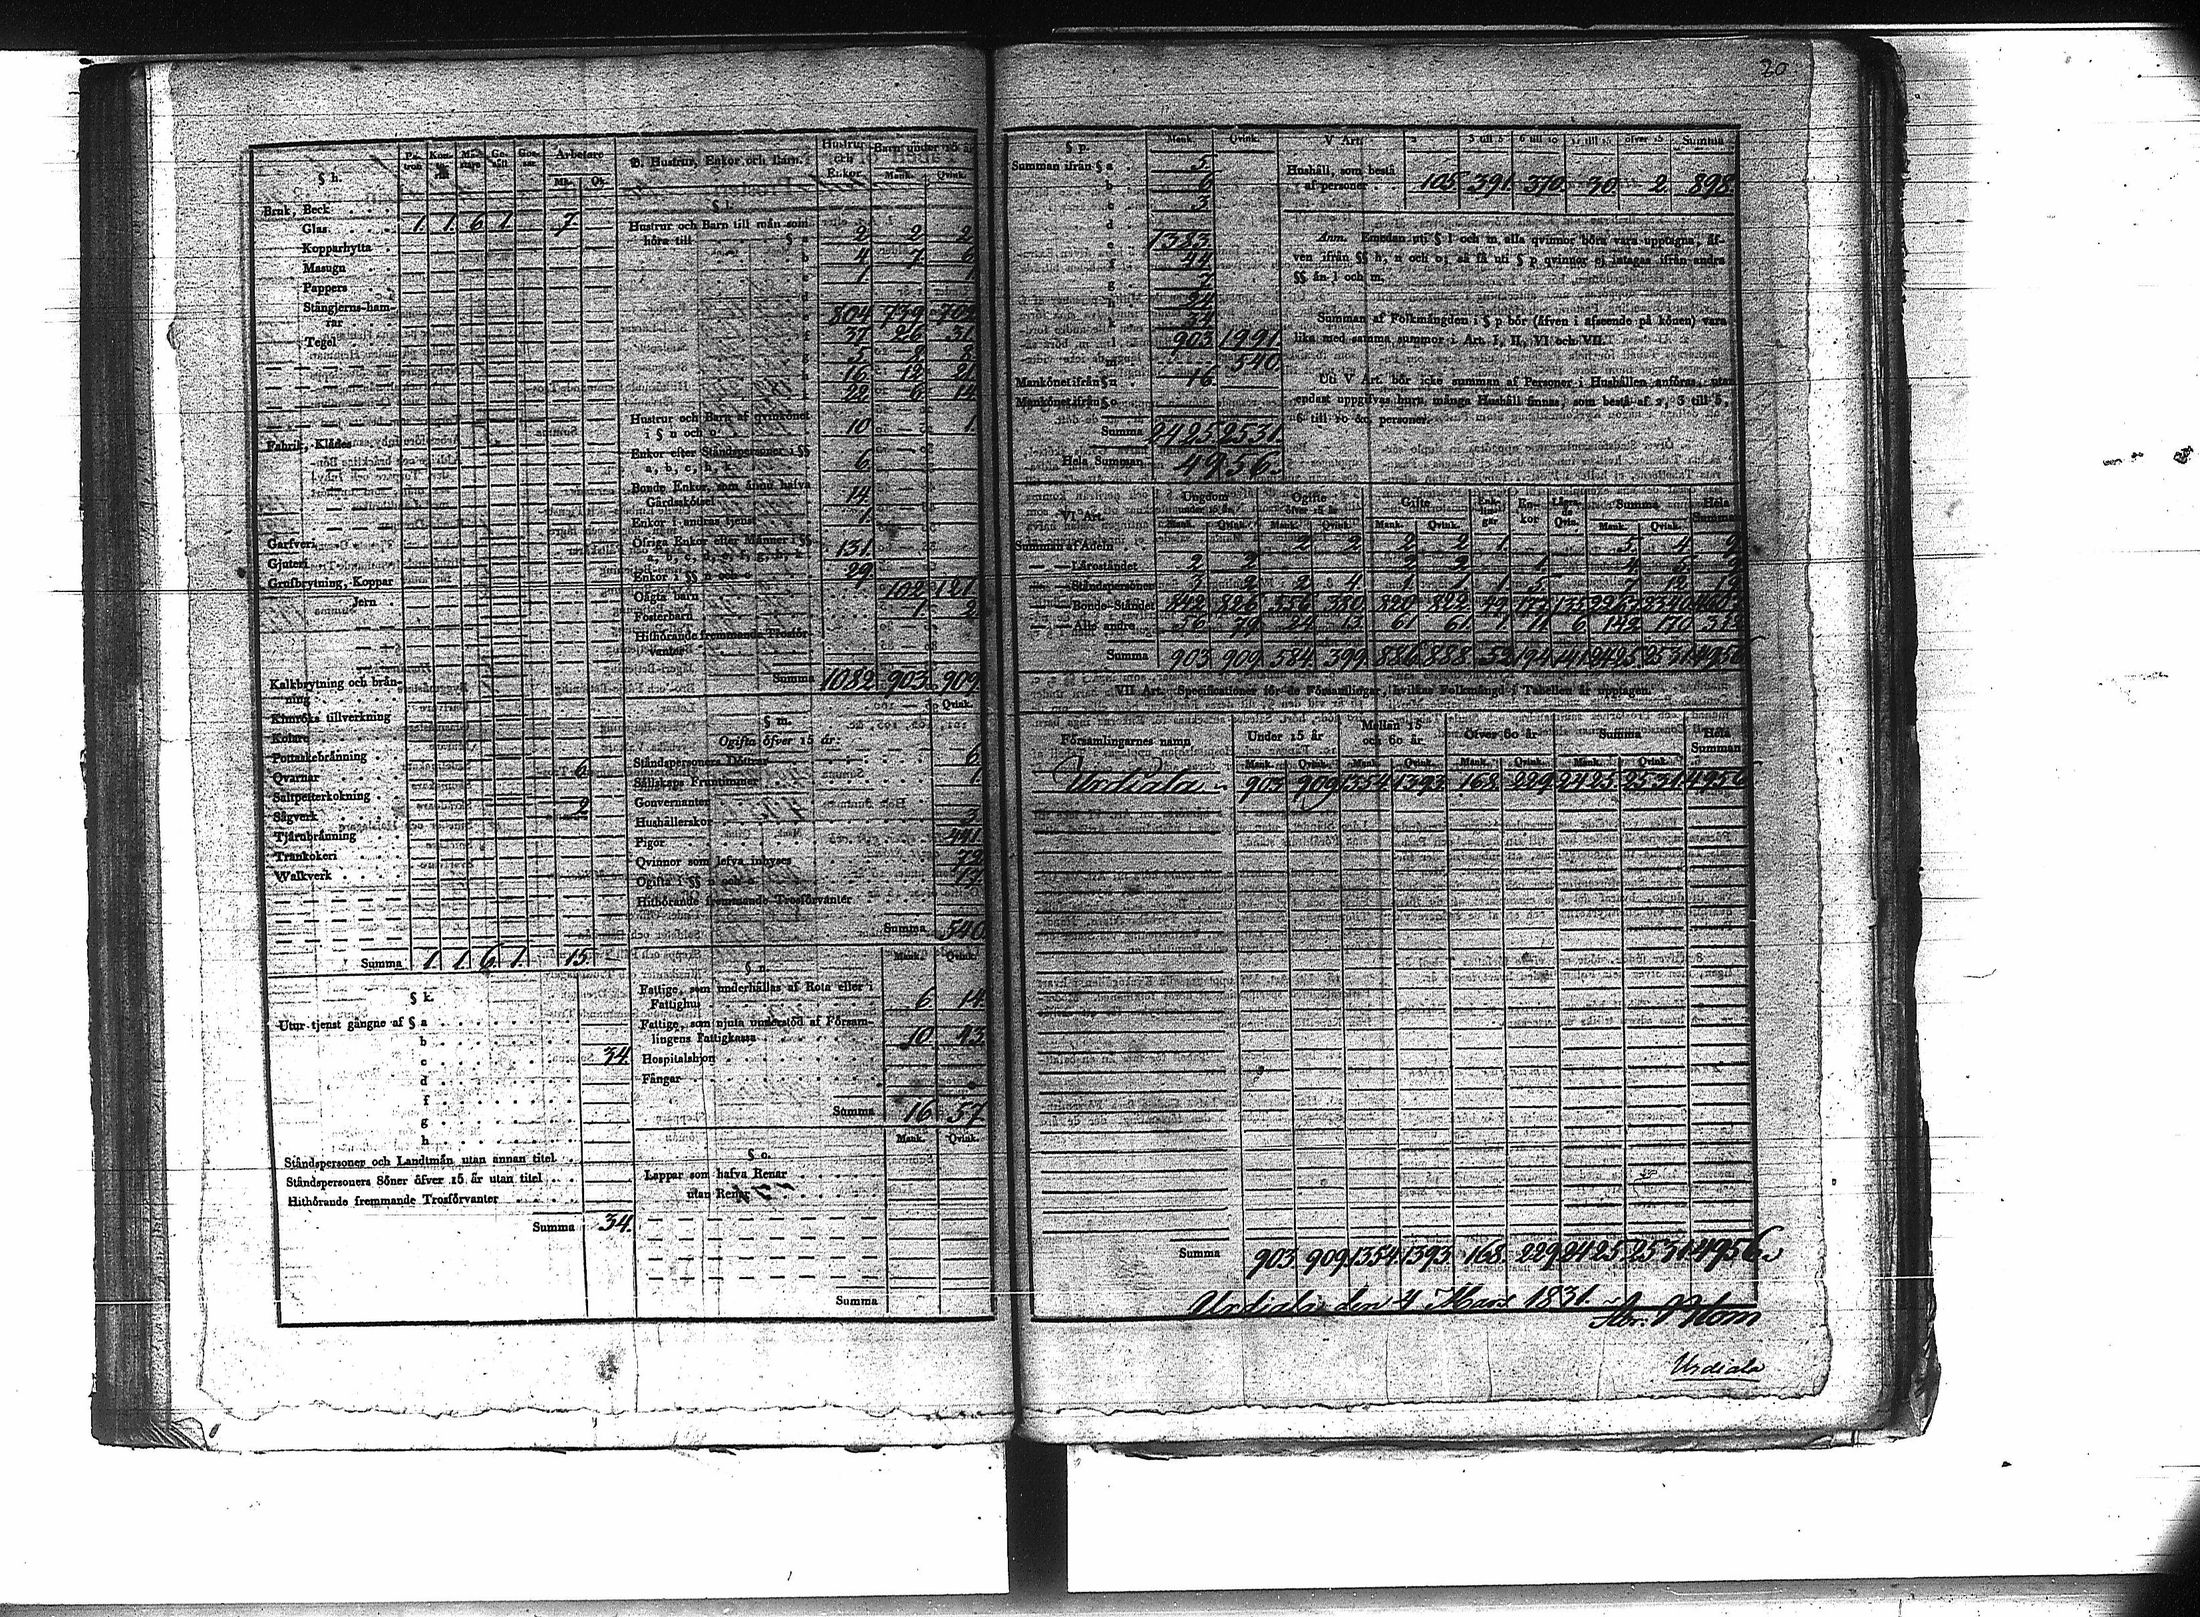 20
§ h.
Pa-
tron
Arbetare
Mk. Qk.
Bruk, Beck
Glas 1. 1. 6 1. 7.
Kopparhytta
Masugn
Pappers
Stångjerns-ham-
rar
Tegel
Fabrik, Klädes
Garfveri
Gjuteri
Grufbrytning, Koppar
Jern
Kalkbrytning och brän-
ning
Kimröks tillverkning
Kolare
Pottaskebränning
Qvarnar 6
Saltpetterkokning
Sågverk 2
Tjärubränning
Trankokeri
Walkverk
Summa 1. 1. 6. 1. 15.
§ k.
Utur tjenst gångne af § a
b
c 34.
d
f
g
h
Ståndspersoner och Landtmän utan annan titel
Ståndspersoners Söner öfver 15 år utan titel
Hithörande fremmande Trosförvanter
Summa 34.
B. Hustrur, Enkor och Barn.
Hustrur
och
Enkor
Barn under 15 år
Mank. Qvink.
§ l.
Hustrur och Barn till män som
höra till § a 2 2 2
b 4 7 6
c 1. 1
d
e 804 739 702
f 37 26 31.
g 5 8 8
h 16 12 21.
k 22 6 14
Hustrur och Barn af qvinkönet
i § n och o 10 1.
Enkor efter Ståndspersoner i §§
a, b, c, h, k 6.
Bonde Enkor, som ännu hafva
Gårdsskötsel 14.
Enkor i andras tjenst 1.
Öfriga Enkor efter Männer i §§
a, b, c, d, e, f, g, h, k 131.
Enkor i §§ n och o 29
Oägta barn 102 121.
Fosterbarn 1 2
Hithörande fremmande Trosför-
vanter
Summa 1082 903. 909.
§ m.
Qvink.
Ogifta öfver 15 år.
Ståndspersoners Döttrar 6
Sällskaps Fruntimmer 1.
Gouvernanter
Hushållerskor 3
Pigor 441.
Qvinnor som lefva inhyses 72
Ogifta i §§ n och o 17.
Hithörande fremmande Trosförvanter
Summa 540.
Mank. Qvink.
§ n.
Fattige, som underhållas af Rota eller i
Fattighus 6 14
Fattige, som njuta understöd af Försam-
lingens Fattigkassa 10 43
Hospitalshjon
Fångar
Summa 16 57.
Mank. Qvink.
§ o.
Lappar som hafva Renar
utan Renar
Summa
§ p.
Mank. Qvink.
Summan ifrån § a 5
b 6
c 3
d
e 1383.
f 44
g 2
h 24
k 34
l 903 1991.
m 540.
Mankönet ifrån § n 16.
Mankönet ifrån § o
Summa 2425 2531.
Hela Summan 4956.
V Art.
2 3 till 5 6 till 10 11 till 15 öfver 15 Summa
Hushåll, som bestå
af personer 105 391. 370. 30. 2. 898.
Anm. Emedan uti § l och m, alla qvinnor böra vara upptagna, äf-
ven ifrån §§ h, n och o, så få uti § p qvinnor ej intagas ifrån andra
§§ än l och m.
Summan af Folkmängden i § p bör (äfven i afseende på könen) vara
lika med samma summor i Art. I, II, VI och VII.
Uti V Art. bör icke summan af Personer i Hushållen anföras, utan
endast uppgifvas huru många Hushåll finnas, som bestå af 2, 3 till 5,
6 till 10 &c. personer.
VI Art.
Ungdom
under 15 år
Ogifte
öfver 15 år
Gifte
Enk-
lin-
gar
En-
kor
Summa
Hela
Summan
Mank. Qvink. Mank. Qvink. Mank. Qvink. Qvin. Mank. Qvink.
Summan af Adeln 2 2 2 2 1 5 4 9
Läroståndet 2 2 2 2 1
Ståndspersoner 3 2 2 4 1 1 1 5 7 12 19
Bonde-Ståndet 842 826 556 380 820 822
Alle andre 56 79 24 13 61 61 1 11 6 142 170 312
Summa 903. 909. 584. 399. 886. 888. 52. 194. 141. 2425. 2531. 4956
VII Art. Specificationer för de Församlingar, hvilkas Folkmängd i Tabellen är upptagen.
Församlingarnes namn
Under 15 år
Mellan 15
och 60 år
Öfver 60 år
Summa
Hela
Summan
Mank. Qvink. Mank. Qvink. Mank. Qvink. Mank. Qvink.
Urdiala 903. 909 1354. 1393. 168. 229. 2425. 2531. 4956
Summa 903. 909. 1354. 1393. 168. 229. 2425. 2531. 4956.
Urdiala den 4 Mars 1831.
Urdiala